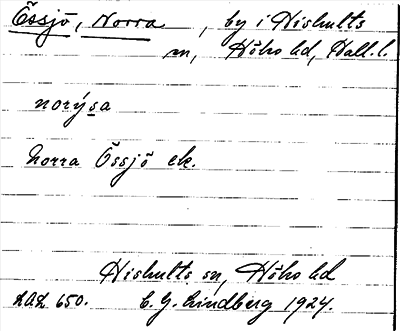 Össjö, Norra, by i Hishults
sn, Höks hd, Hall. l.
norýsa
Norra Össjö ek.
Hishults sn, Höks hd
LAL 650. C. G. Lindberg 1924.